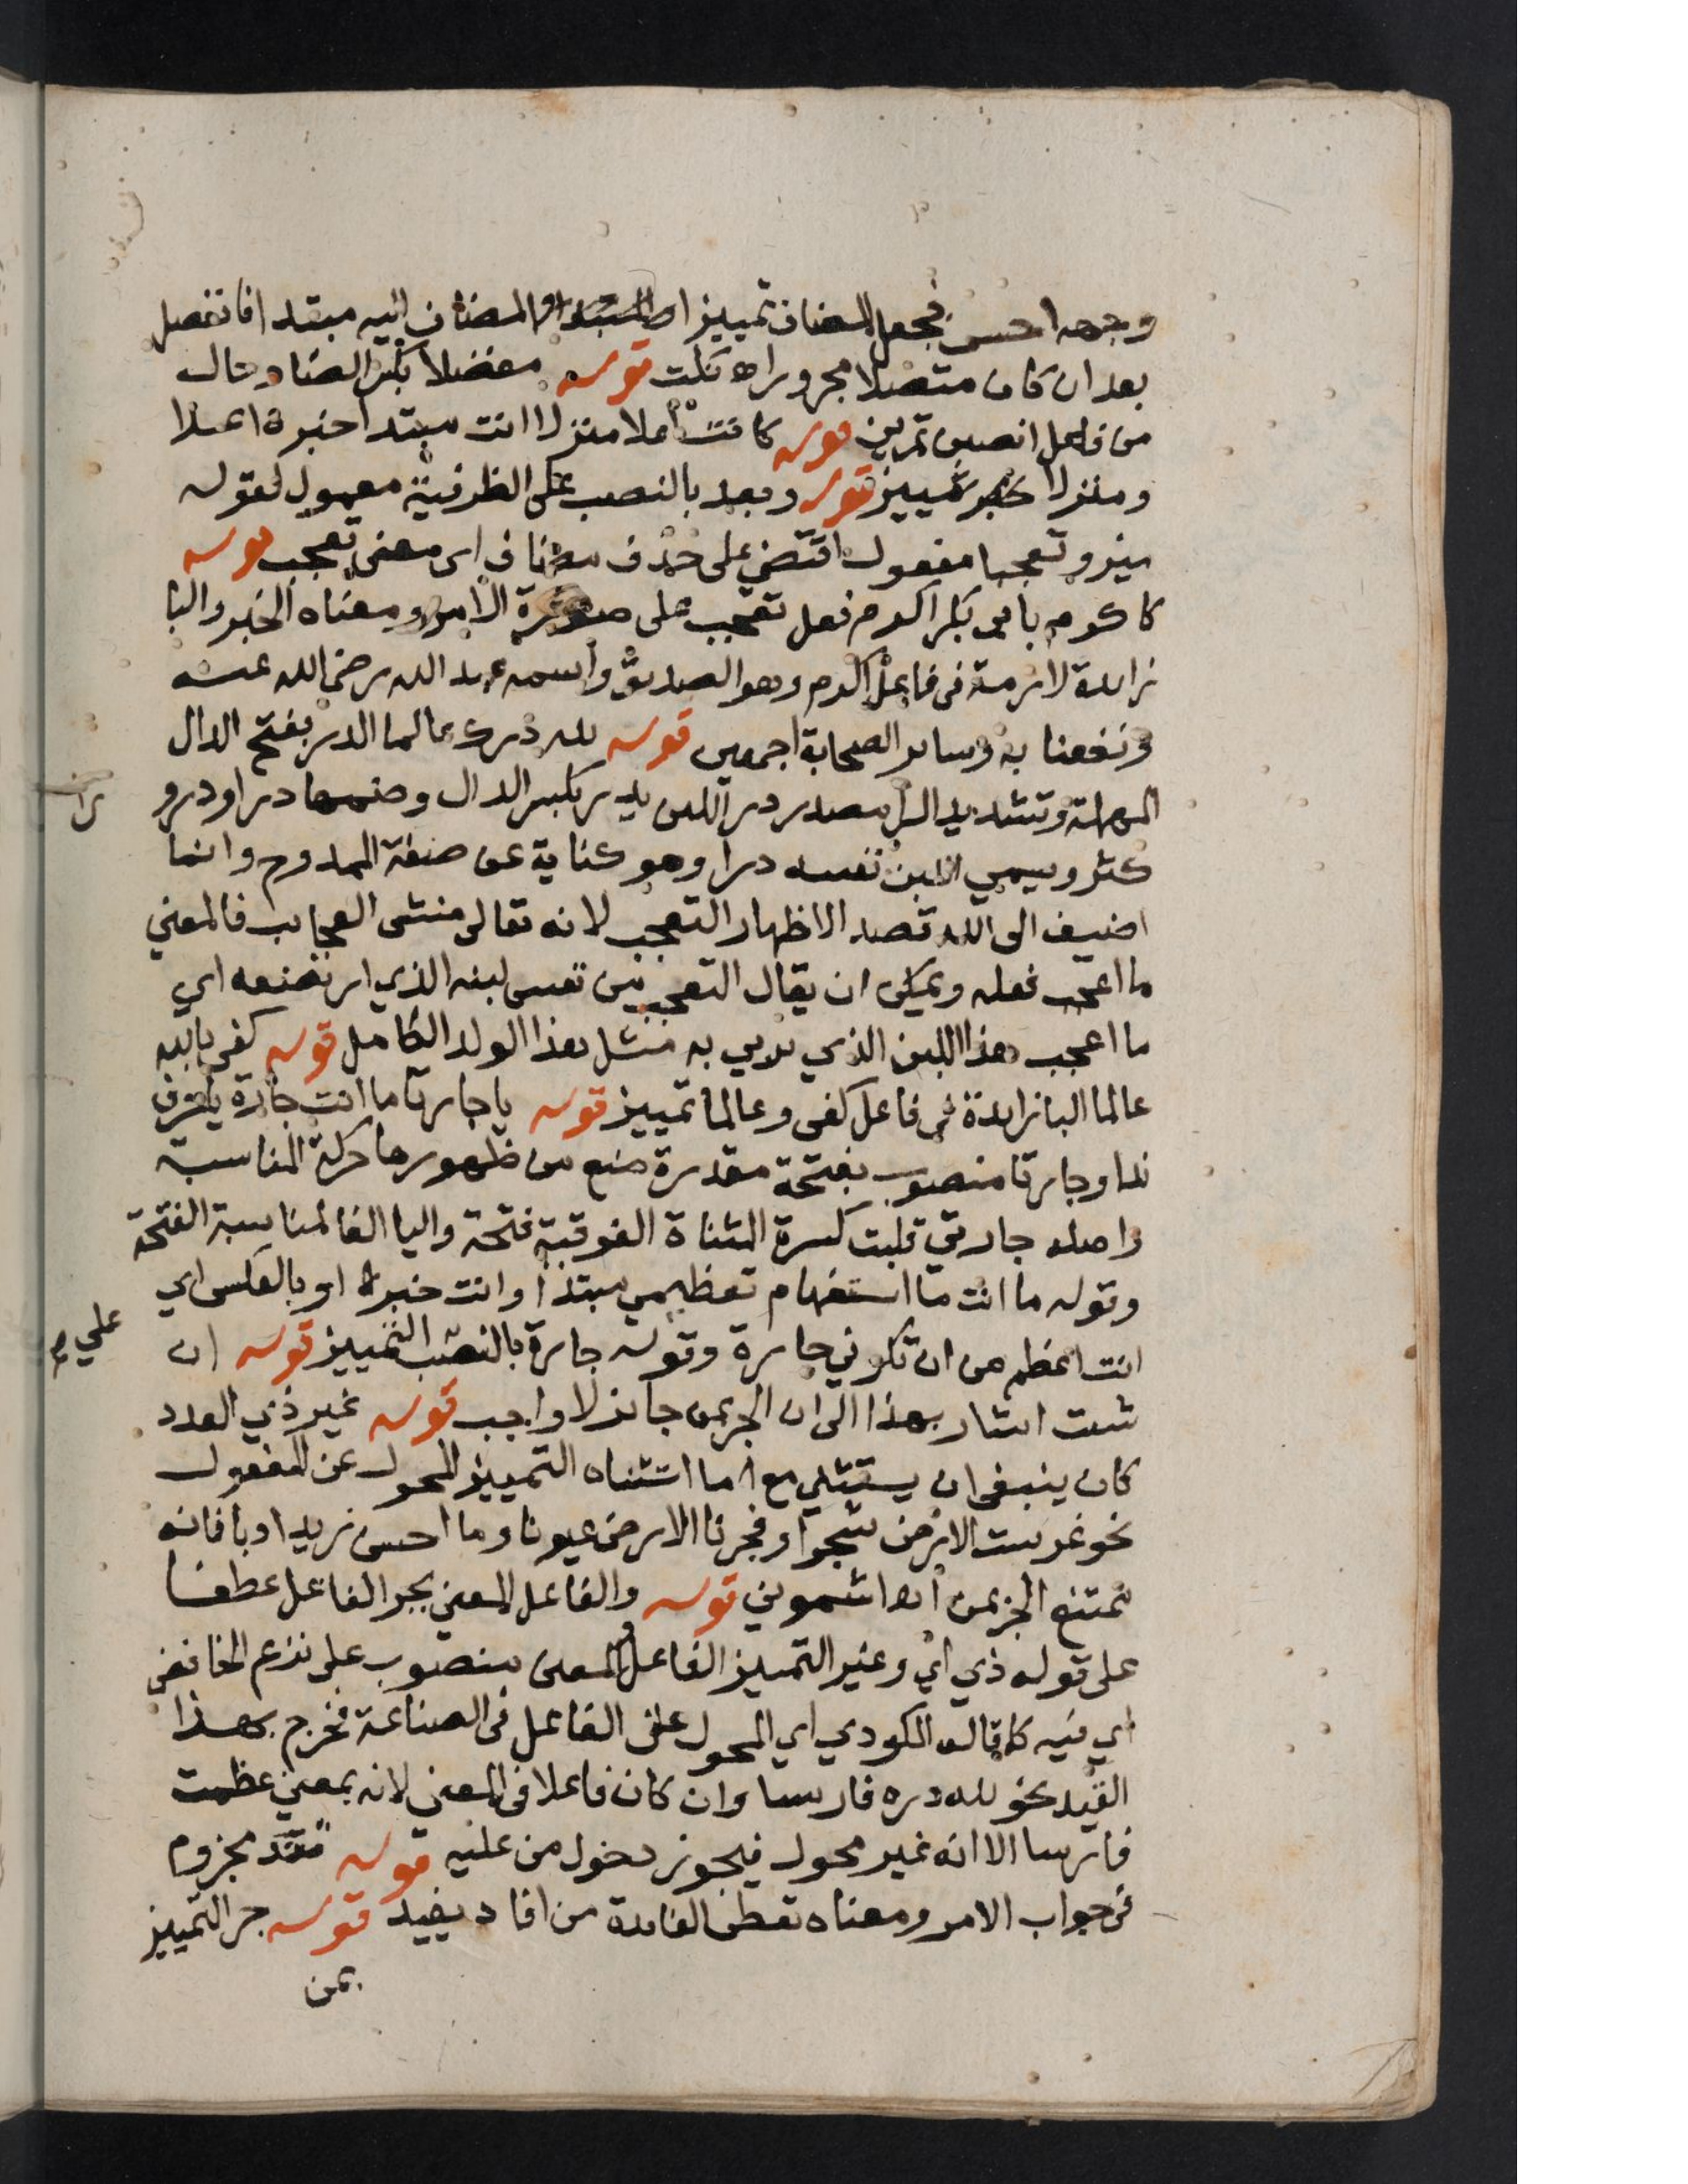 وجهه احسن فجعل المضاف تمييزا والمضاف اليه مبتدا فانفصل
بعد ان كان متصلا مجرورا اه نكت قوله مفضلا بكسر الضاد حال
من فاعل انصبن تمرين قوله كانت اعلا منزلا انت مبتدا خبره اعلا
ومنزلا تمييز قوله وبعد بالنصب على الظرفية معمول لقوله
ميز وتعجبا مفعول اقتضى على حذف مضاف اى معنى تعجب قوله
كاكرم بابى بكر اكرم فعل تعجب على صورة الامر ومعناه الخبر والبا
زايدة لازمة فى فاعل اكرم وهو الصديق واسمه عبد الله رضى الله عنه
ونفعنا به وساير الصحابة اجمعين قوله لله درك عالما الدر بفتح الدال
المهملة وتشديد الرا مصدر در اللبن يدر بكسر الدال وضمها درا ودرو
كثر ويسمي اللبن نفسه درا وهو كناية عن صفة الممدوح وانما
اضيف الى الله قصد الاظهار التعجب لانه تعالى منشى العجايب فالمعني
ما اعجب فعله ويمكن ان يقال التعجب من نفس لبنه الذي ارتضعه اي
ما اعجب هذا اللبن الذي يربي به مثل هذا الولد الكامل قوله كفى بالله
عالما البا زايدة فى فاعل كفى وعالما تمييز قوله يا جارتا ما انت جارة يا حرف
ندا وجارتا منصوب بفتحة مقدرة منع من ظهورها حركة المناسبة
واصله جارتي قلبت كسرة المثناة الفوقية فتحة واليا الفا لمناسبة الفتحة
وقوله ما انت ما استفهام تعظيمي مبتدا وانت خبره او بالعكس اي
انت اعظم من ان تكوني جارة وقوله جارة بالنصب التمييز قوله ان
علي
شئت اشار بهذا الى ان الجر بمن جائز لا واجب قوله غير ذي العدد
كان ينبغى ان يستثني مع ما استثناه التمييز المحول عن المفعول
نحو غرست الارض شجرا وفجرنا الارض عيونا وما احسن زيدا ادبا فانه
يمتنع الجر بمن اه اشموني قوله والفاعل المعنى بجر الفاعل عطفا
على قوله ذي اي وغير التمييز الفاعل والمعنى منصوب على نزع الخافض
اي فيه كما قاله المكودي اي المحول عن الفاعل فى الصناعة فخرج بهذا
القيد نحو لله دره فارسا وان كان فاعلا فى المعنى لانه بمعنى عظمت
فارسا الا انه غير محول فيجوز دخول من عليه قوله تفد مجزوم
فى جواب الامر ومعناه تعطى الفائدة من افاد يفيد قوله جر التمييز
بمن